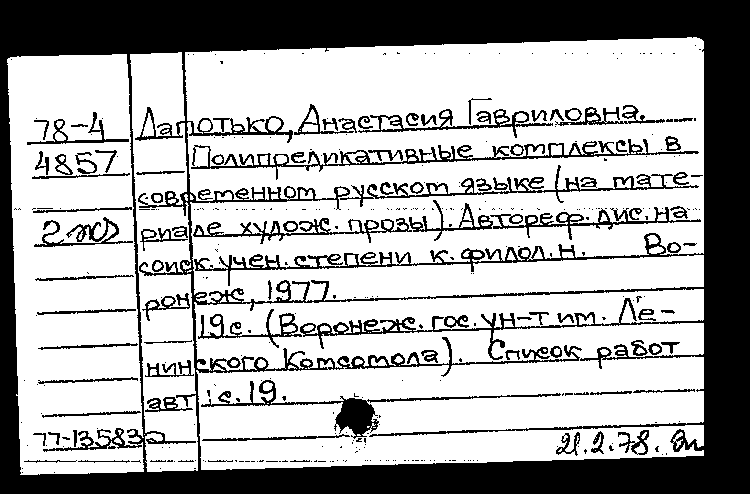 78-4 Лапотько, Анастасия Гавриловна.
4857 Полипредикативные комплексы в
современном русском языке (на мате-
риале худож. прозы). Автореф. дис. на
соиск. учен. степени к. филол. н. Во-
ронеж, 1977.
19с. (Воронеж. гос. ун-т им. Ле-
нинского Комсомола). Список работ
авт.: с. 19.
77-13583
21.2.78.